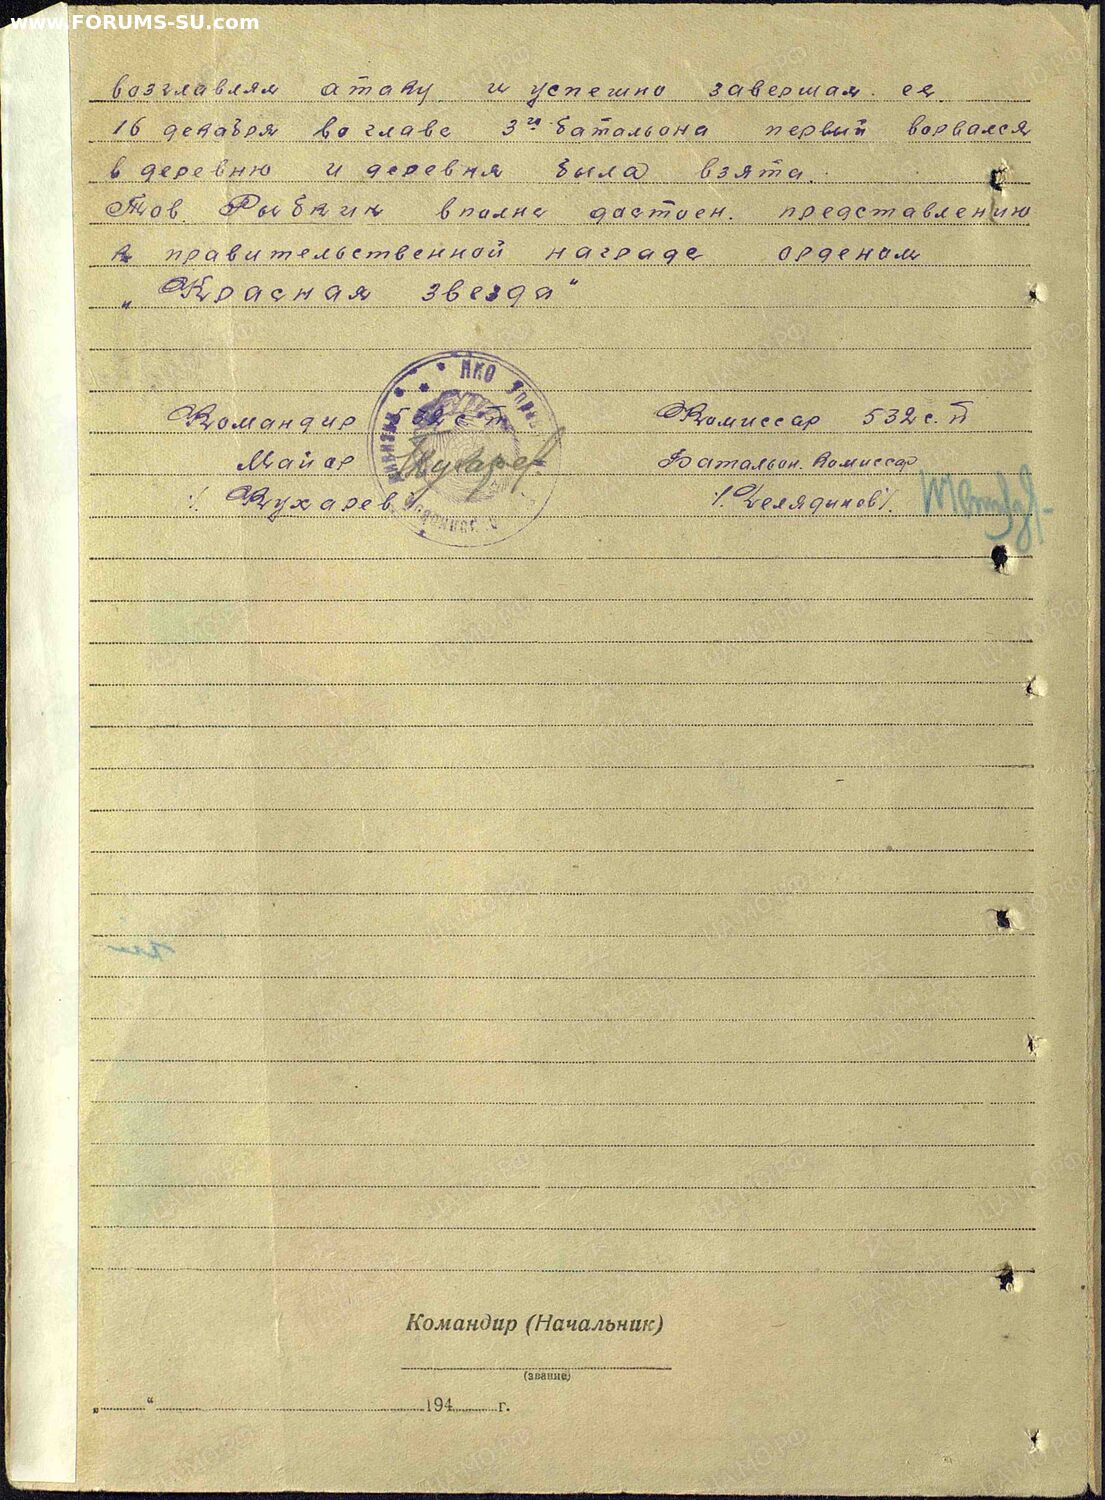 www.FORUMS-SU.com
возглавлял атаку и успешно завершал ее.
16 декабря во главе 3го батальона первый ворвался
в деревню и деревня была взята.
Тов. Рыбкин вполне достоен. представлению
к правительственной награде орденом
„Красная звезда"
Командир 532 с.п Комиссар 532 с.п
Майор Батальон. Комиссар
/Кухарев/ /Челядинов/.
НКО
Командир (Начальник)
(звание)
„ “ 194 г.